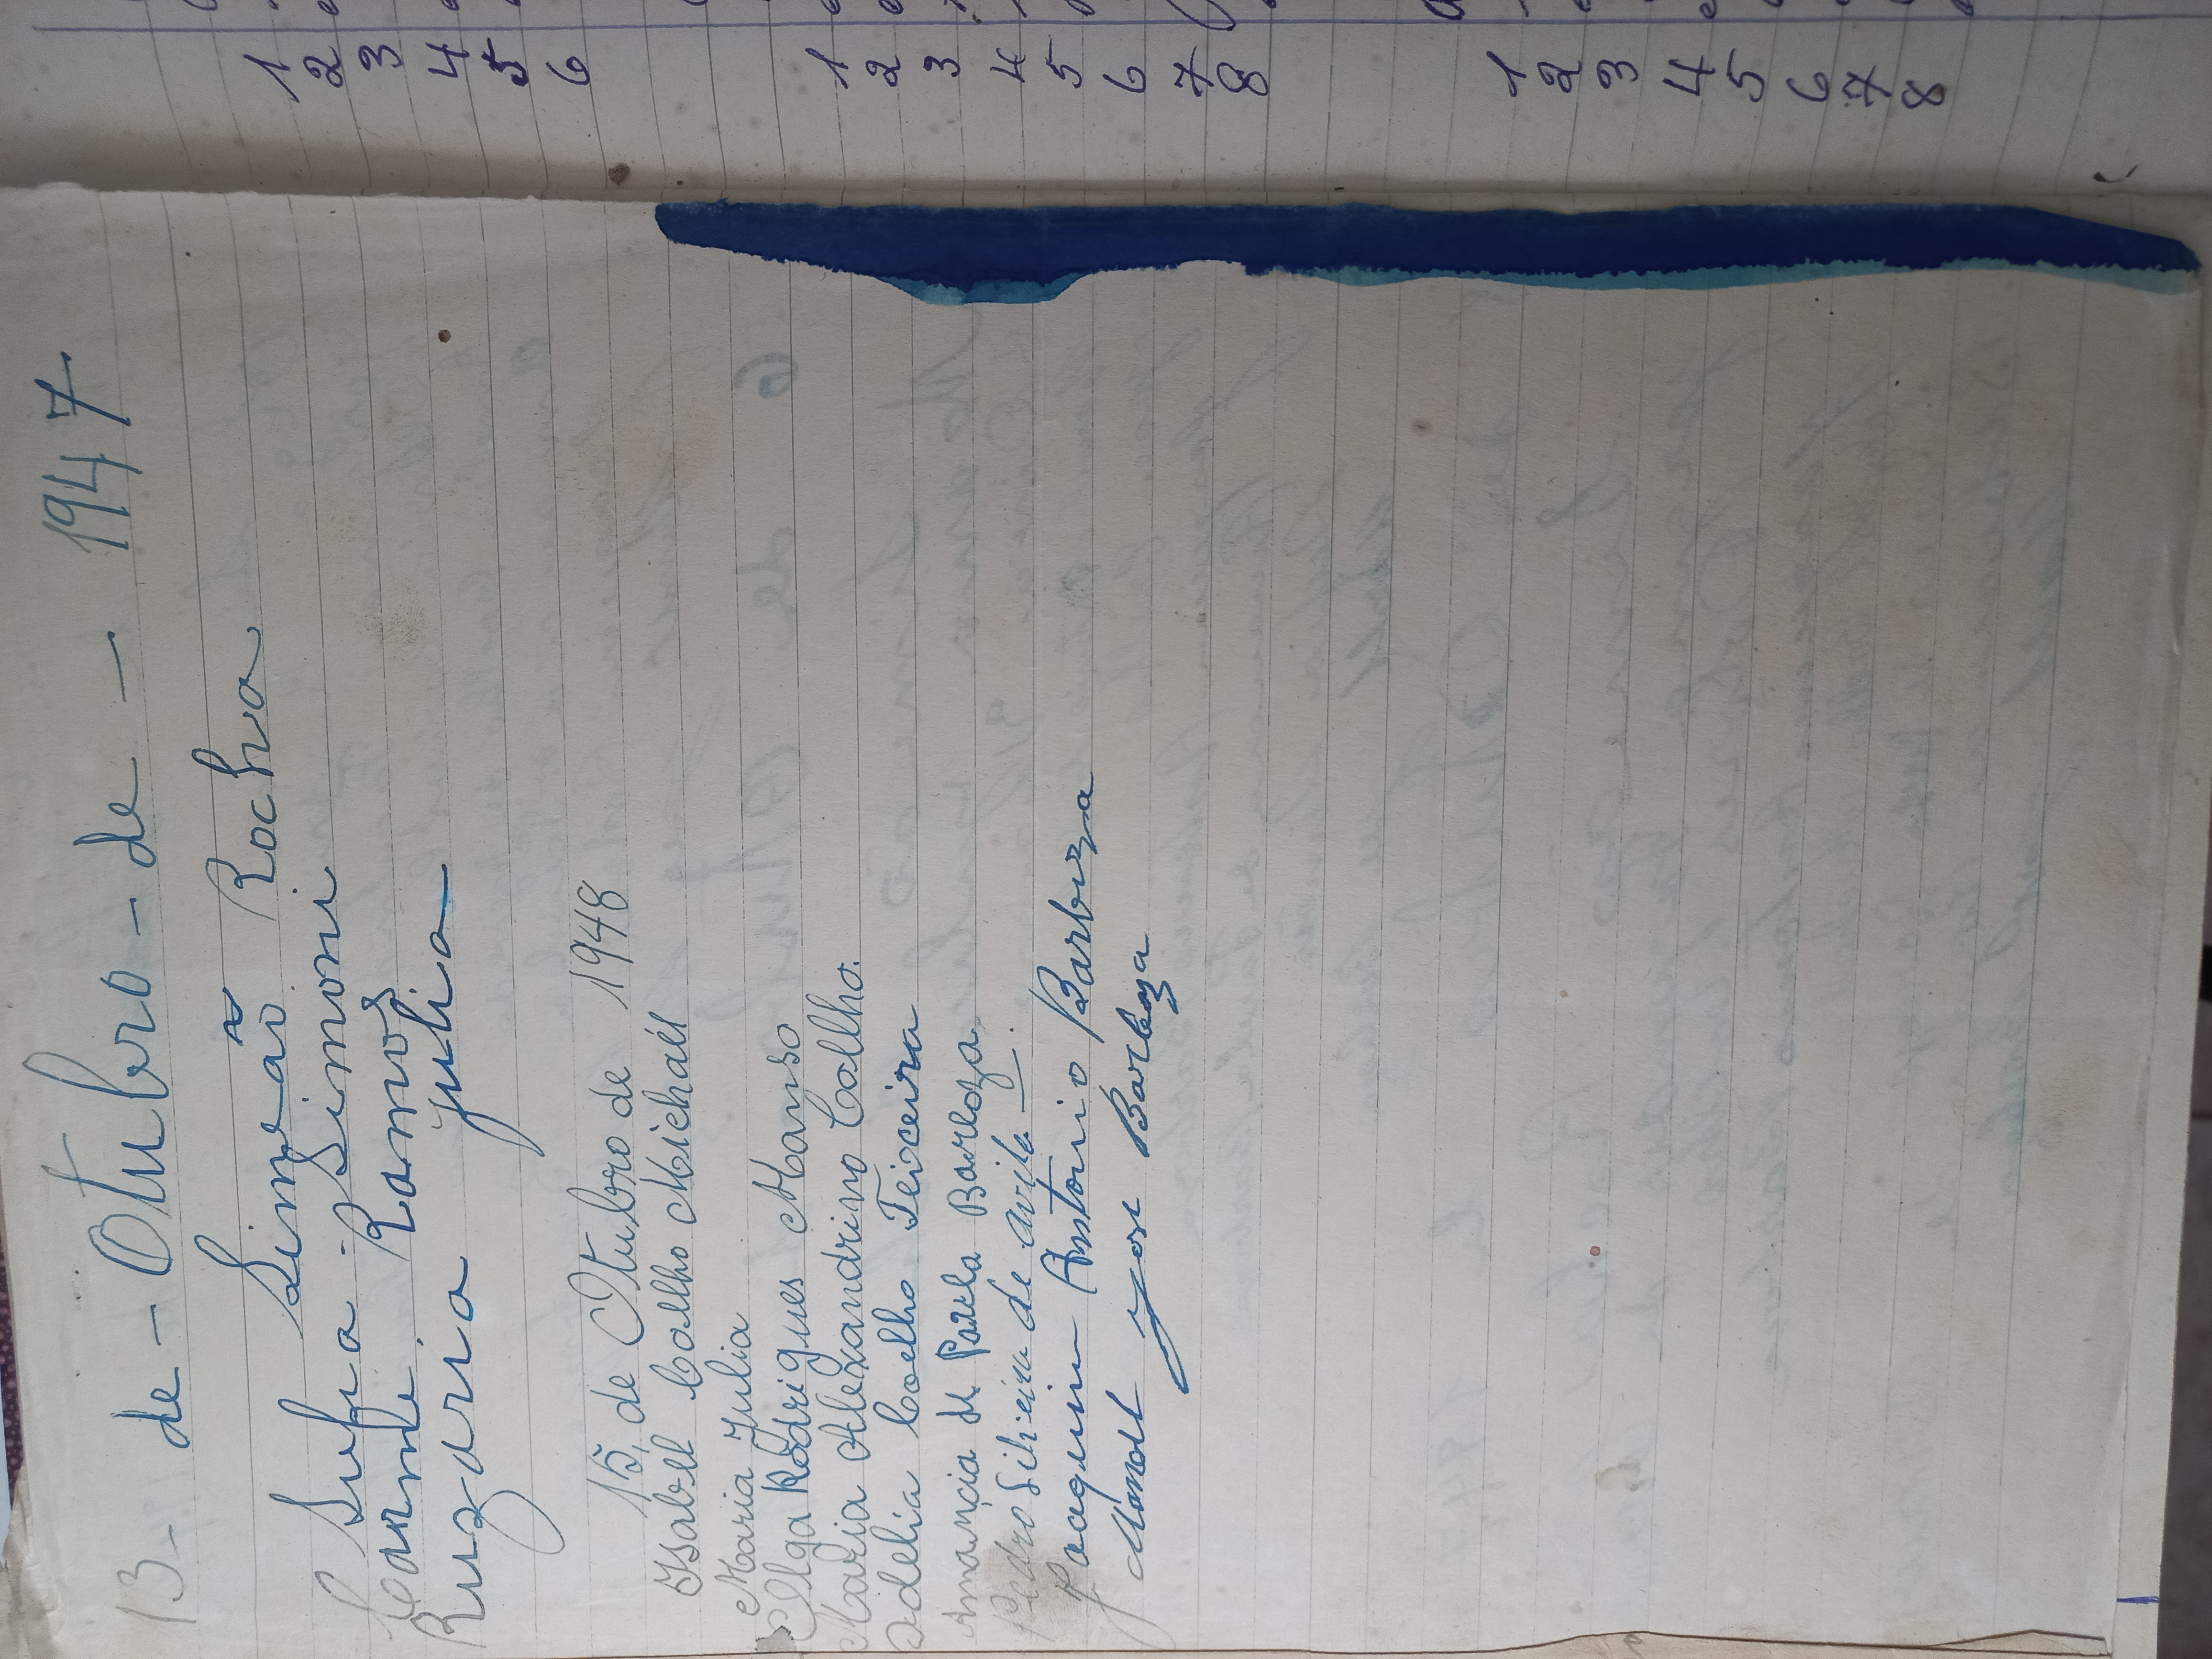 13 - de - Otubro - de - 1947
Sufia Simeão Rocha
Carme Simoni
Ramos
Ruzaria Julia
15, de Otubro de 1948
Isabel Coalho Michaél
Maria Julia
Olga Rodrigues Manso
Maria Alexandrino Coalho.
Idelia Coelho Teixeira
Amancia de Paula Barboza.
Pedro Silveira de avila
Joaquim Antonio Barbuza
Manoel José Barboza
1
2
3
4
5
6
1
2
3
4
5
6
7
8
1
2
3
4
5
6
7
8